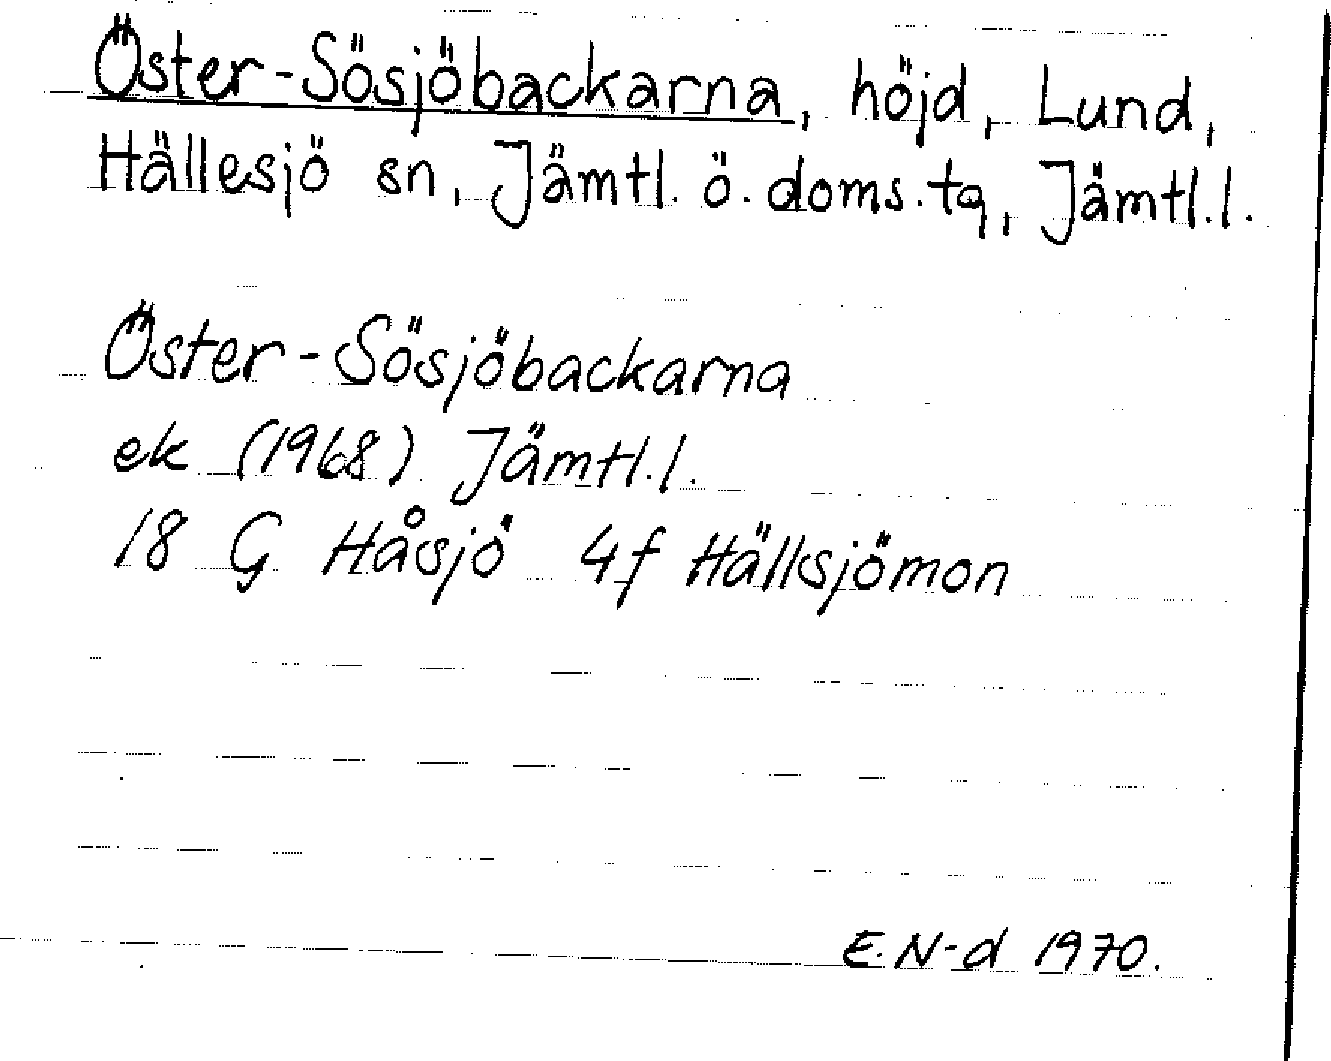 Öster-Sösjöbackarna, höjd, Lund,
Hällesjö sn, Jämtl. ö. doms. tg, Jämtl. l.
Öster-Sösjöbackarna
ek (1968) Jämtl. l.
18 G Håsjö 4f Hällsjömon
E. N-d 1970.